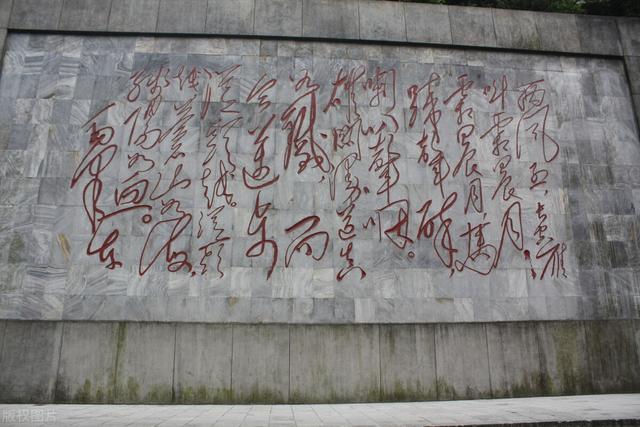 西风烈,长空雁
叫霜晨月。
霜晨月,马
蹄声碎,
喇叭声咽。
雄关漫道真
如铁,而
今迈步
从头越从头
越苍山如海,
残阳如血。
毛泽东
版权图片